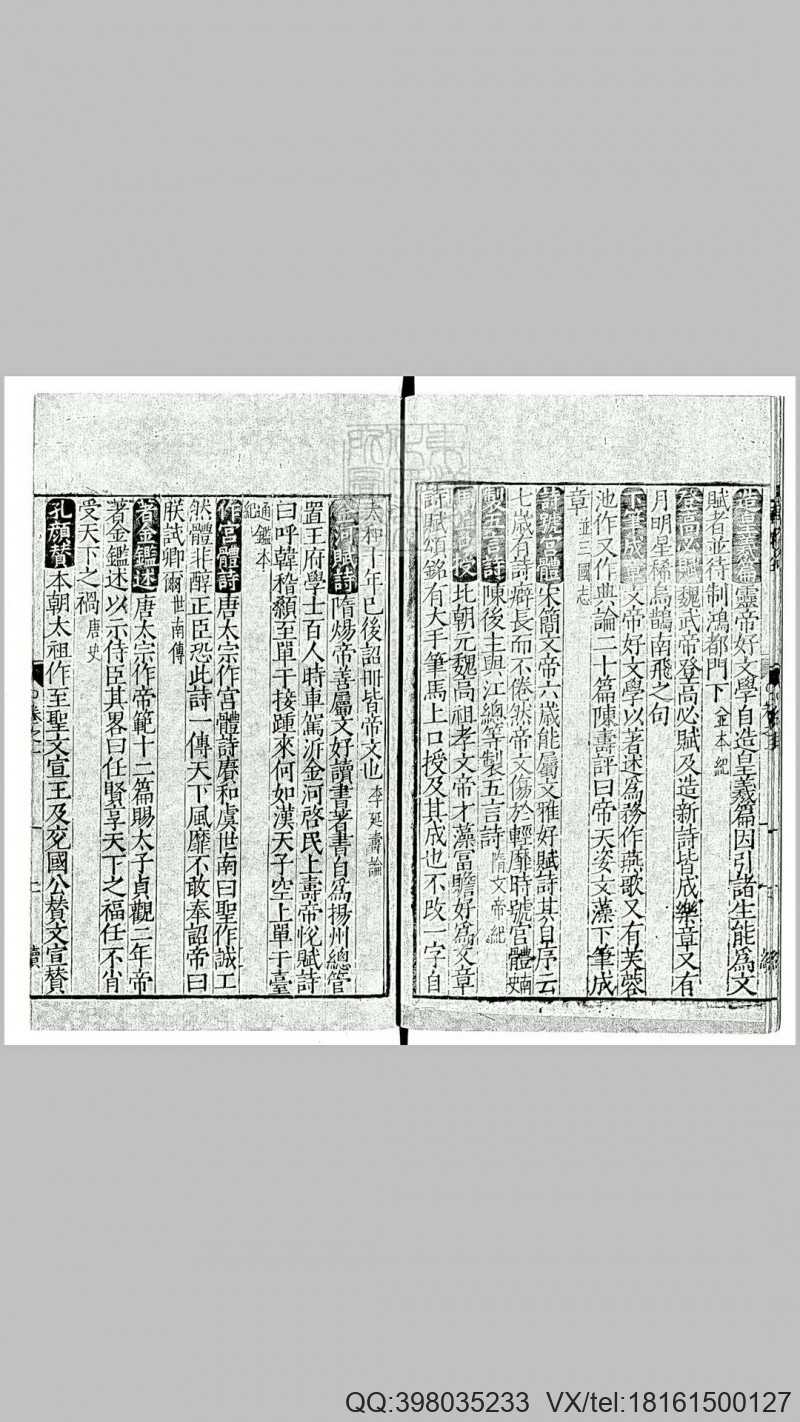 造皇羲篇靈帝好文學自造皇羲篇因引諸生能為文
賦者並待制鴻都門下 金本紀
登高必賦魏武帝登高必賦及造新詩皆成樂章又有
月明星稀烏鵲南飛之句
下筆成章文帝好文學以著述為務作燕歌又有芙蓉
池作又作典論二十篇陳壽評曰帝天姿文藻下筆成
章 並三國志
詩號宮體宋簡文帝六歲能屬文雅好賦詩其自序云
七歲有詩癖長而不倦然帝文傷於輕靡時號宮體南史
製五言詩陳後主與江總等製五言詩 隋文帝紀
馬上口授北朝元魏高祖孝文帝才藻富贍好為文章
詩賦頌銘有大手筆馬上口授及其成也不改一字自
太和十年已後詔冊皆帝文也 李延壽論
金河賦詩隋煬帝善屬文好讀書著書自為揚州總管
置王府學士百人時車駕泝金河啓民上壽帝悅賦詩
曰呼韓稽顙至單于接踵來何如漢天子空上單于臺
通鑑本紀
作宮體詩唐太宗作宮體詩賡和虞世南曰聖作誠工
然體非醇正臣恐此詩一傳天下風靡不敢奉詔帝曰
朕試卿爾 世南傳
著金鑑述唐太宗作帝範十二篇賜太子貞觀二年帝
著金鑑述以示侍臣其畧曰任賢享天下之福任不肖
受天下之禍 唐史
孔顏贊本朝太祖作至聖文宣王及兗國公贊文宣贊
QQ:398035233 VX/tel:18161500127